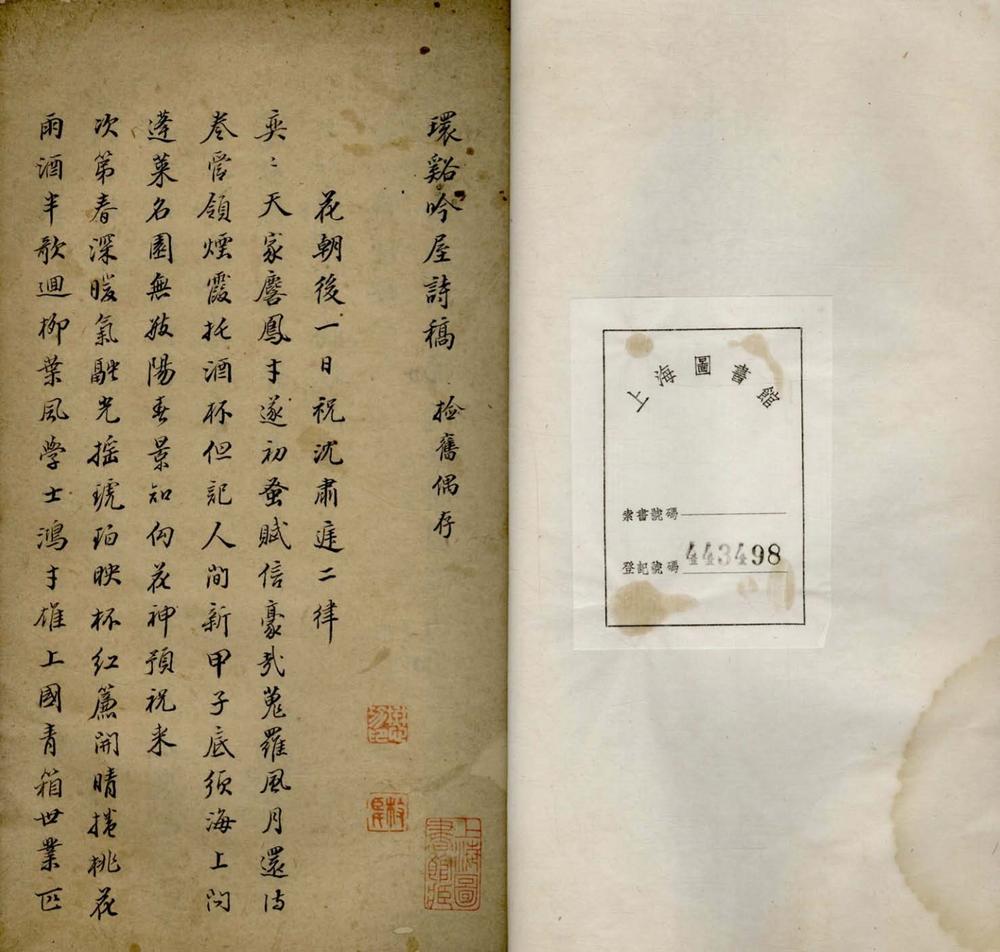 上海圖書館
索書號碼
登記號碼 443498
環谿吟屋詩稿 撿舊偶存
花朝後一日祝沈肅廷二律
奕〻天家麐鳳才遂初蚤賦信豪哉蒐羅風月還詩
卷管領煙霞托酒杯但記人間新甲子底須海上問
蓬萊名園無數陽春景知向花神預祝來
次第春深暖氣融光搖琥珀映杯紅簾開晴捲桃花
雨酒半歌迴柳葉風學士鴻才雄上國青箱世業匹
上海圖書館藏